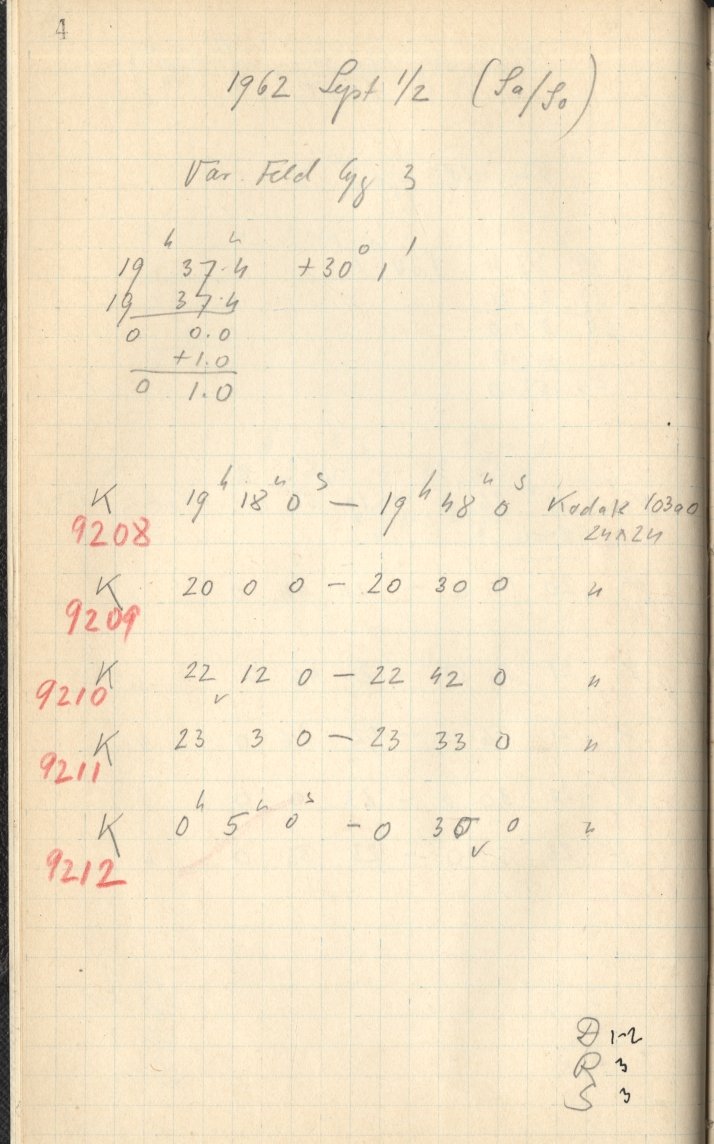 4
1962 Sept 1/2 (Sa/So)
Var. Feld Cyg 3
19 h 37.4 m +30° 1'
19 37.4
0 0.0
+1.0
0 1.0
K 19 h 18 m 0 s — 19 h 48 m 0 s Kodak 103a0
9208 24x24
K 20 0 0 — 20 30 0 "
9209
K 22 12 0 — 22 42 0 "
9210 v
K 23 3 0 — 23 33 0 "
9211
K 0 h 5 m 0 s - 0 35 0 "
9212 v
D 1-2
R 3
S 3